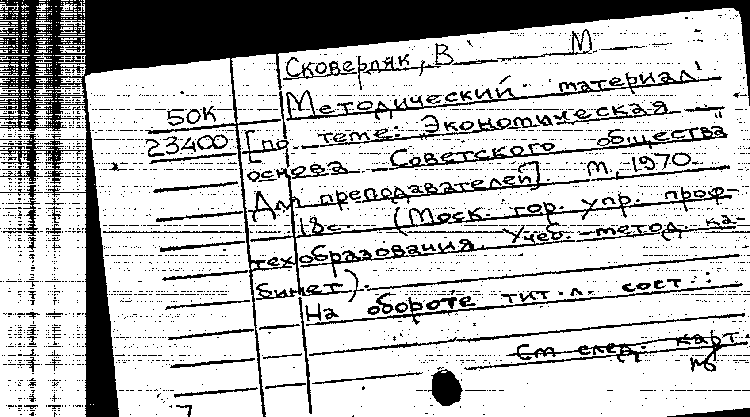 Сковерляк, В М
50К Методический материал
23400 [по теме: „Экономическая
основа Советского общества"
Для преподавателей]. М, 1970.
18с. (Моск. гор. упр. проф-
техобразования. Учеб.-метод. ка-
бинет).
На обороте тит. л. сост.:
См след. карт.